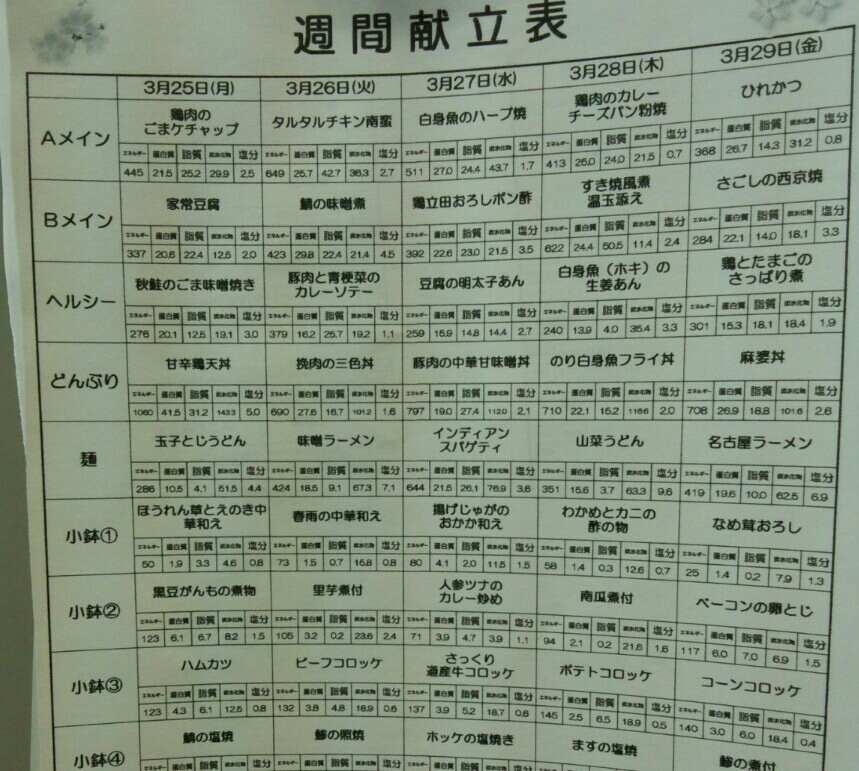 週間献立表
3月25日(月) 3月26日(火) 3月27日(水) 3月28日(木) 3月29日(金)
Aメイン
鶏肉の
ごまケチャップ
タルタルチキン南蛮
白身魚のハーブ焼
鶏肉のカレー
チーズパン粉焼
ひれかつ
エネルギー 蛋白質 脂質 炭水化物 塩分 エネルギー 蛋白質 脂質 炭水化物 塩分 エネルギー 蛋白質 脂質 炭水化物 塩分 エネルギー 蛋白質 脂質 炭水化物 塩分 エネルギー 蛋白質 脂質 炭水化物 塩分
445 21.5 25.2 29.9 2.5 649 25.7 42.7 36.3 2.7 511 27.0 24.4 43.7 1.7 413 25.0 24.0 21.5 0.7 368 26.7 14.3 31.2 0.8
Bメイン
家常豆腐
鯖の味噌煮
鶏立田おろしポン酢
すき焼風煮
温玉添え
さごしの西京焼
エネルギー 蛋白質 脂質 炭水化物 塩分 エネルギー 蛋白質 脂質 炭水化物 塩分 エネルギー 蛋白質 脂質 炭水化物 塩分 エネルギー 蛋白質 脂質 炭水化物 塩分 エネルギー 蛋白質 脂質 炭水化物 塩分
337 20.6 22.4 12.5 2.0 423 29.8 22.4 21.4 4.5 392 22.6 23.0 21.5 3.5 622 24.4 50.5 11.4 2.4 284 22.1 14.0 18.1 3.3
ヘルシー
秋鮭のごま味噌焼き
豚肉と青梗菜の
カレーソテー
豆腐の明太子あん
白身魚(ホキ)の
生姜あん
鶏とたまごの
さっぱり煮
エネルギー 蛋白質 脂質 炭水化物 塩分 エネルギー 蛋白質 脂質 炭水化物 塩分 エネルギー 蛋白質 脂質 炭水化物 塩分 エネルギー 蛋白質 脂質 炭水化物 塩分 エネルギー 蛋白質 脂質 炭水化物 塩分
276 20.1 12.5 19.1 3.0 379 16.2 25.7 19.2 1.1 259 15.9 14.8 14.4 2.7 240 13.9 4.0 35.4 3.3 301 15.3 18.1 18.4 1.9
どんぶり
甘辛鶏天丼
挽肉の三色丼
豚肉の中華甘味噌丼
のり白身魚フライ丼
麻婆丼
エネルギー 蛋白質 脂質 炭水化物 塩分 エネルギー 蛋白質 脂質 炭水化物 塩分 エネルギー 蛋白質 脂質 炭水化物 塩分 エネルギー 蛋白質 脂質 炭水化物 塩分 エネルギー 蛋白質 脂質 炭水化物 塩分
1060 41.5 31.2 143.3 5.0 690 27.6 16.7 101.2 1.6 797 19.0 27.4 112.0 2.1 710 22.1 15.2 116.6 2.0 708 26.9 18.8 101.6 2.6
麺
玉子とじうどん
味噌ラーメン
インディアン
スパゲティ
山菜うどん
名古屋ラーメン
エネルギー 蛋白質 脂質 炭水化物 塩分 エネルギー 蛋白質 脂質 炭水化物 塩分 エネルギー 蛋白質 脂質 炭水化物 塩分 エネルギー 蛋白質 脂質 炭水化物 塩分 エネルギー 蛋白質 脂質 炭水化物 塩分
286 10.5 4.1 51.5 4.4 424 18.5 9.1 67.3 7.1 644 21.5 26.1 76.9 3.6 351 15.6 3.7 63.3 9.6 419 19.6 10.0 62.5 6.9
小鉢①
ほうれん草とえのき中
華和え
春雨の中華和え
揚げじゃがの
おかか和え
わかめとカニの
酢の物
なめ茸おろし
エネルギー 蛋白質 脂質 炭水化物 塩分 エネルギー 蛋白質 脂質 炭水化物 塩分 エネルギー 蛋白質 脂質 炭水化物 塩分 エネルギー 蛋白質 脂質 炭水化物 塩分 エネルギー 蛋白質 脂質 炭水化物 塩分
50 1.9 3.3 4.6 0.8 73 1.5 0.7 15.8 0.8 80 4.1 2.0 11.5 1.5 58 1.4 0.3 12.6 0.7 25 1.4 0.2 7.9 1.3
小鉢②
黒豆がんもの煮物
里芋煮付
人参ツナの
カレー炒め
南瓜煮付
ベーコンの卵とじ
エネルギー 蛋白質 脂質 炭水化物 塩分 エネルギー 蛋白質 脂質 炭水化物 塩分 エネルギー 蛋白質 脂質 炭水化物 塩分 エネルギー 蛋白質 脂質 炭水化物 塩分 エネルギー 蛋白質 脂質 炭水化物 塩分
123 6.1 6.7 8.2 1.5 105 3.2 0.2 23.6 2.4 71 3.9 4.7 3.9 1.1 94 2.1 0.2 21.6 1.6 117 6.0 7.0 6.9 1.5
小鉢③
ハムカツ
ビーフコロッケ
さっくり
道産牛コロッケ
ポテトコロッケ
コーンコロッケ
エネルギー 蛋白質 脂質 炭水化物 塩分 エネルギー 蛋白質 脂質 炭水化物 塩分 エネルギー 蛋白質 脂質 炭水化物 塩分 エネルギー 蛋白質 脂質 炭水化物 塩分 エネルギー 蛋白質 脂質 炭水化物 塩分
123 4.3 6.1 12.5 0.8 132 3.8 4.8 18.9 0.6 137 3.9 5.2 18.7 0.6 145 2.5 6.5 18.9 0.5 140 3.0 6.0 18.4 0.4
小鉢④
鯖の塩焼
鯵の照焼
ホッケの塩焼き
ますの塩焼
鯵の煮付